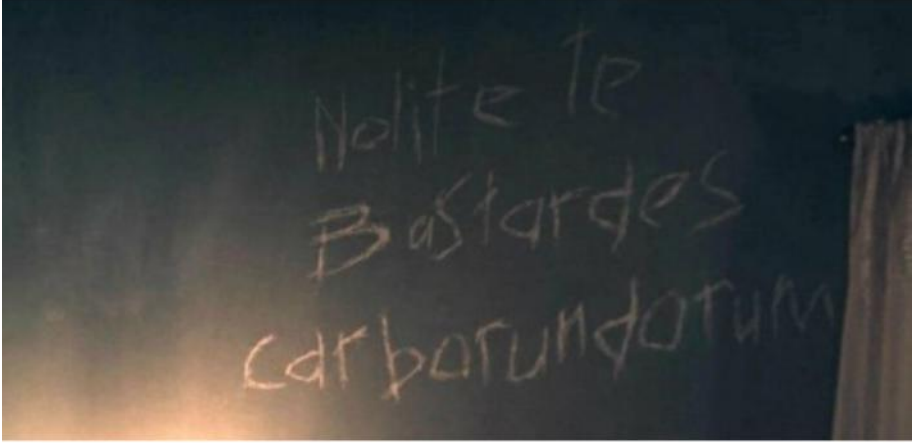 Nolite te
Bastardes
carborundorum